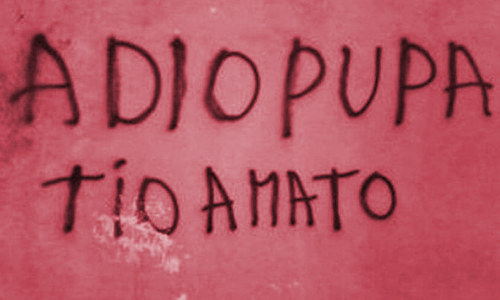 ADIO PUPA
TiO AMATO